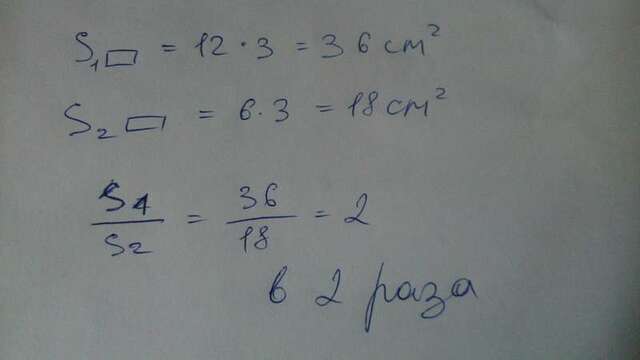 S₁▭ = 12·3 = 36 см²
S₂▭ = 6·3 = 18 см²
S1/S2 = 36/18 = 2
в 2 раза